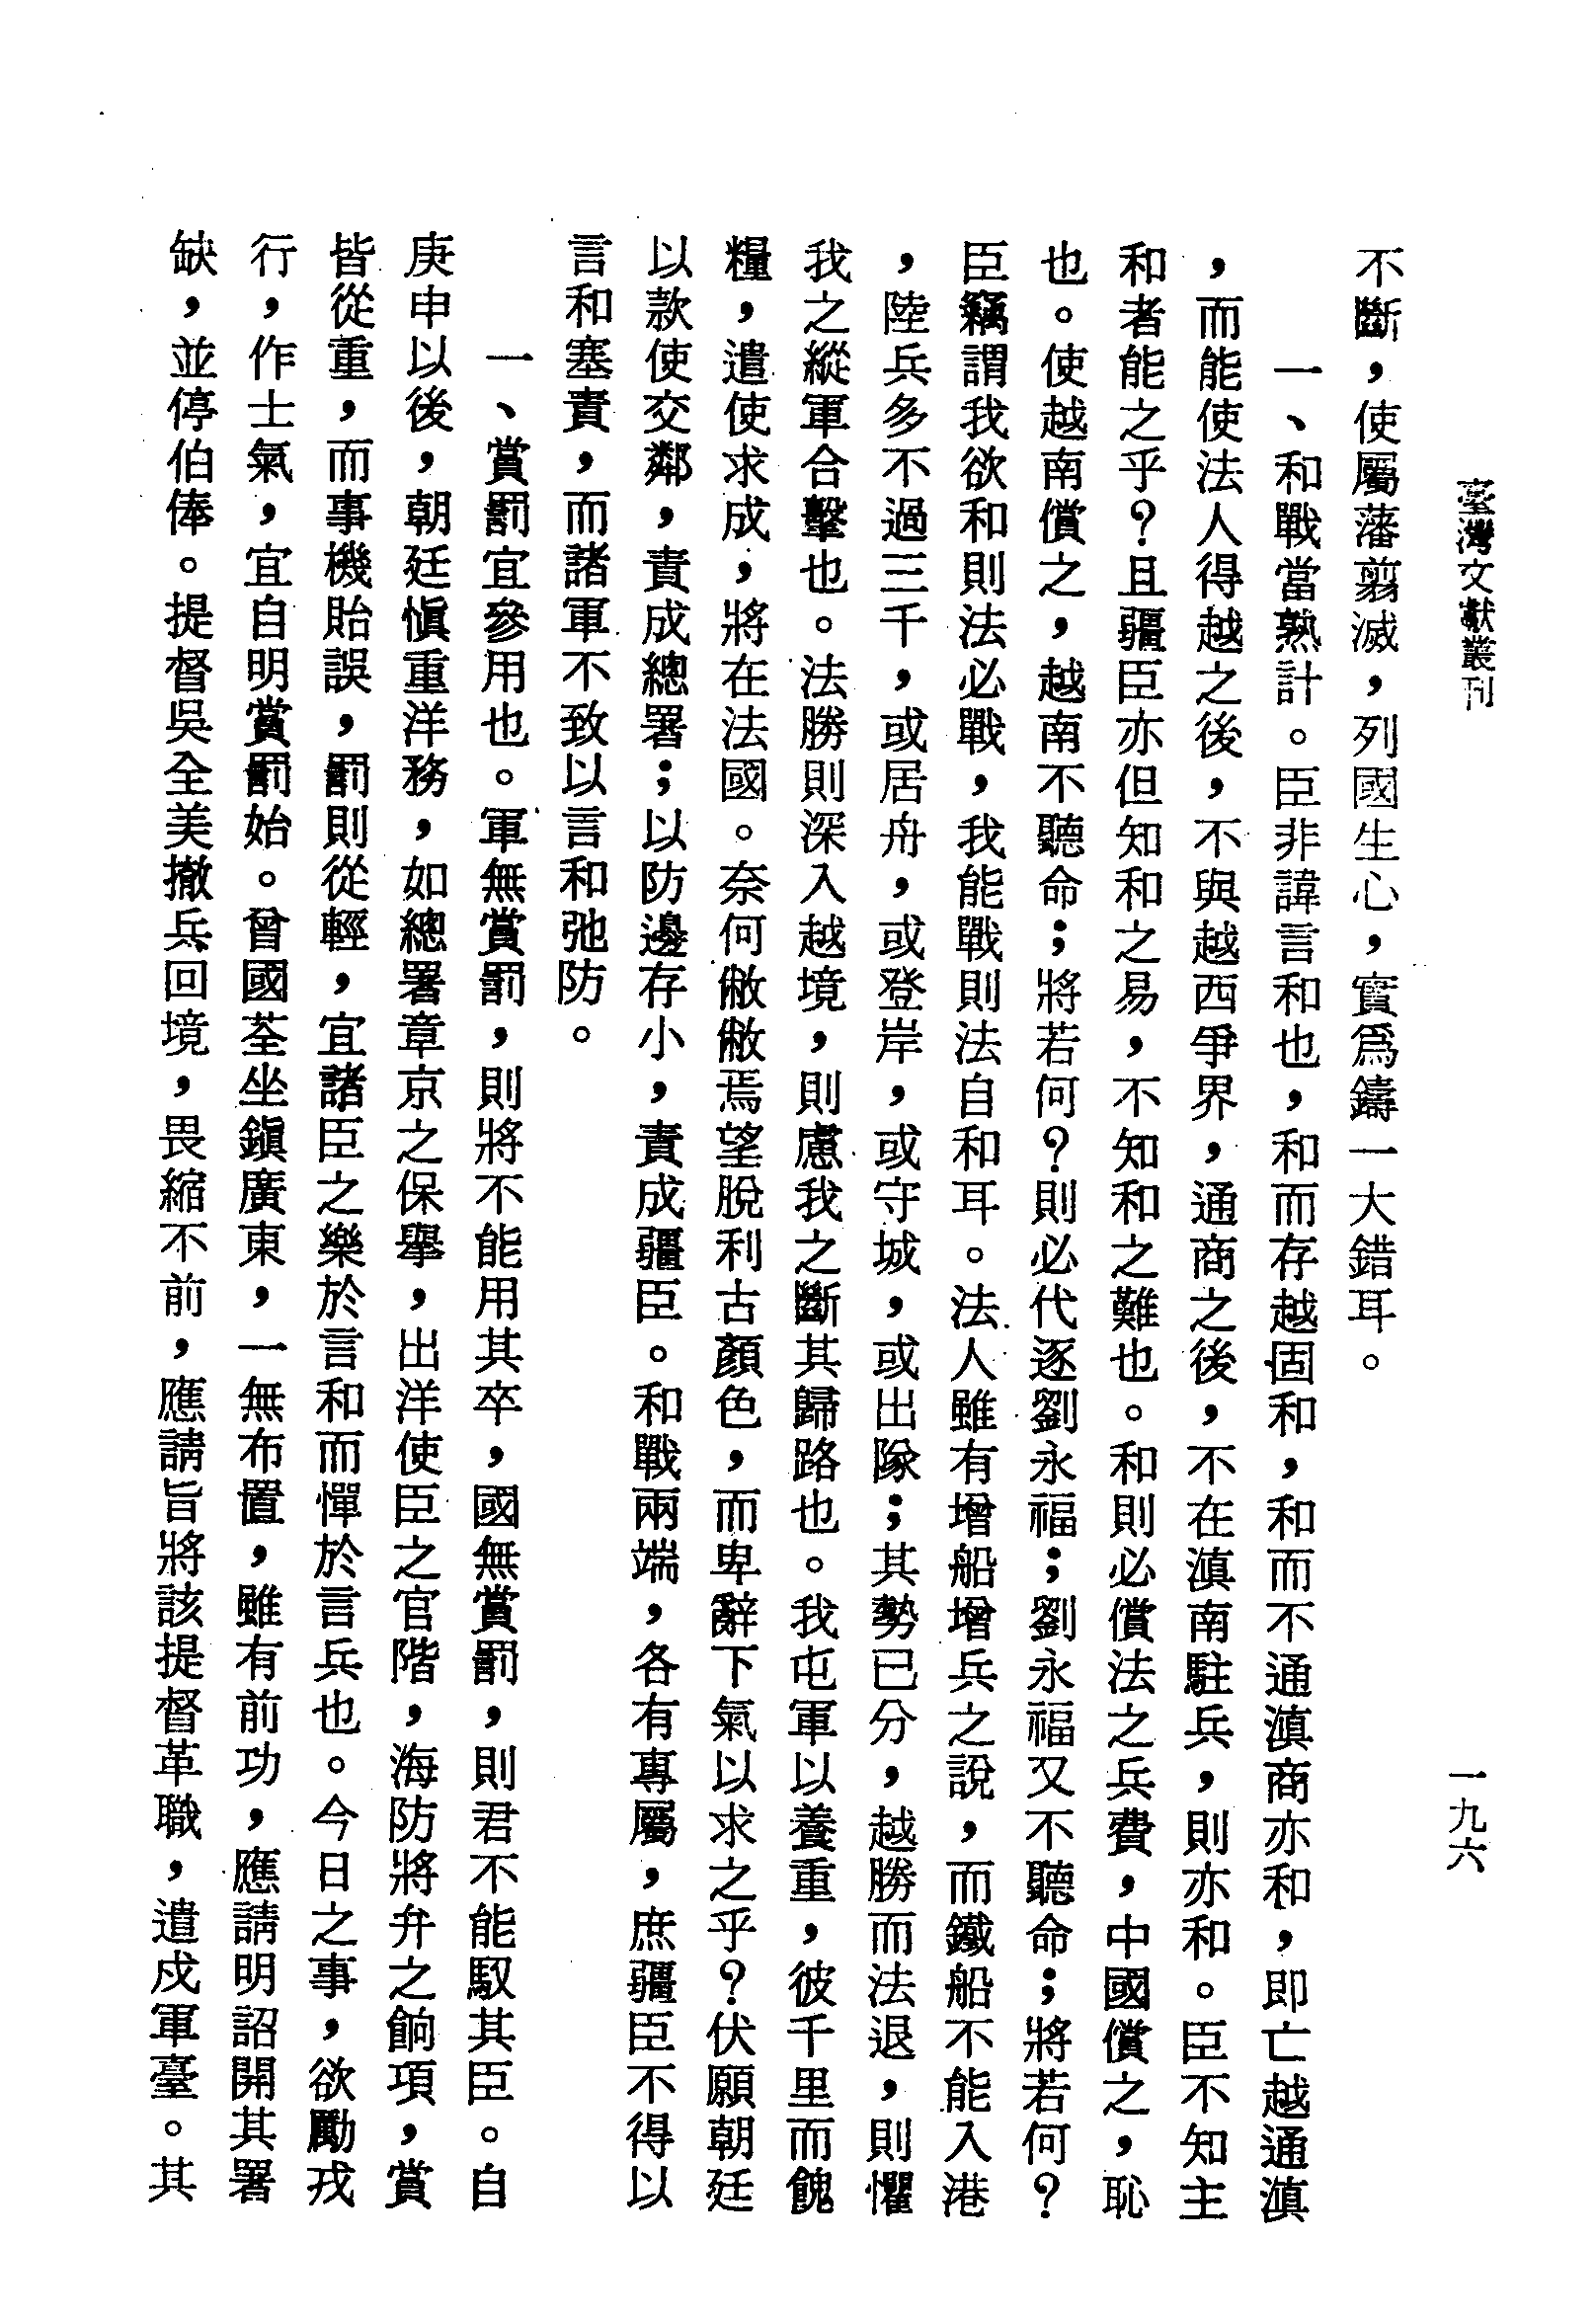 臺灣文獻叢刊
一九六
不斷，使屬藩翦滅，列國生心，實爲鑄一大錯耳。
一、和戰當熟計。臣非諱言和也，和而存越固和，和而不通滇商亦和，即亡越通滇
，而能使法人得越之後，不與越西爭界，通商之後，不在滇南駐兵，則亦和。臣不知主
和者能之乎？且疆臣亦但知和之易，不知和之難也。和則必償法之兵費，中國償之，恥
也。使越南償之，越南不聽命；將若何？則必代逐劉永福；劉永福又不聽命；將若何？
臣竊謂我欲和則法必戰，我能戰則法自和耳。法人雖有增船增兵之說，而鐵船不能入港
，陸兵多不過三千，或居舟，或登岸，或守城，或出隊；其勢已分，越勝而法退，則懼
我之縱軍合擊也。法勝則深入越境，則慮我之斷其歸路也。我屯軍以養重，彼千里而餽
糧，遣使求成，將在法國。奈何僘僘焉望脫利古顏色，而卑辭下氣以求之乎？伏願朝廷
以款使交鄰，責成總署；以防邊存小，責成疆臣。和戰兩端，各有專屬，庶疆臣不得以
言和塞責，而諸軍不致以言和弛防。
一、賞罰宜參用也。軍無賞罰，則將不能用其卒，國無賞罰，則君不能馭其臣。自
庚申以後，朝廷愼重洋務，如總署章京之保舉，出洋使臣之官階，海防將弁之餉項，賞
皆從重，而事機貽誤，罰則從輕，宜諸臣之樂於言和而憚於言兵也。今日之事，欲勵戎
行，作士氣，宜自明賞罰始。曾國荃坐鎭廣東，一無布置，雖有前功，應請明詔開其署
缺，並停伯俸。提督吳全美撤兵回境，畏縮不前，應請旨將該提督革職，遣戍軍臺。其